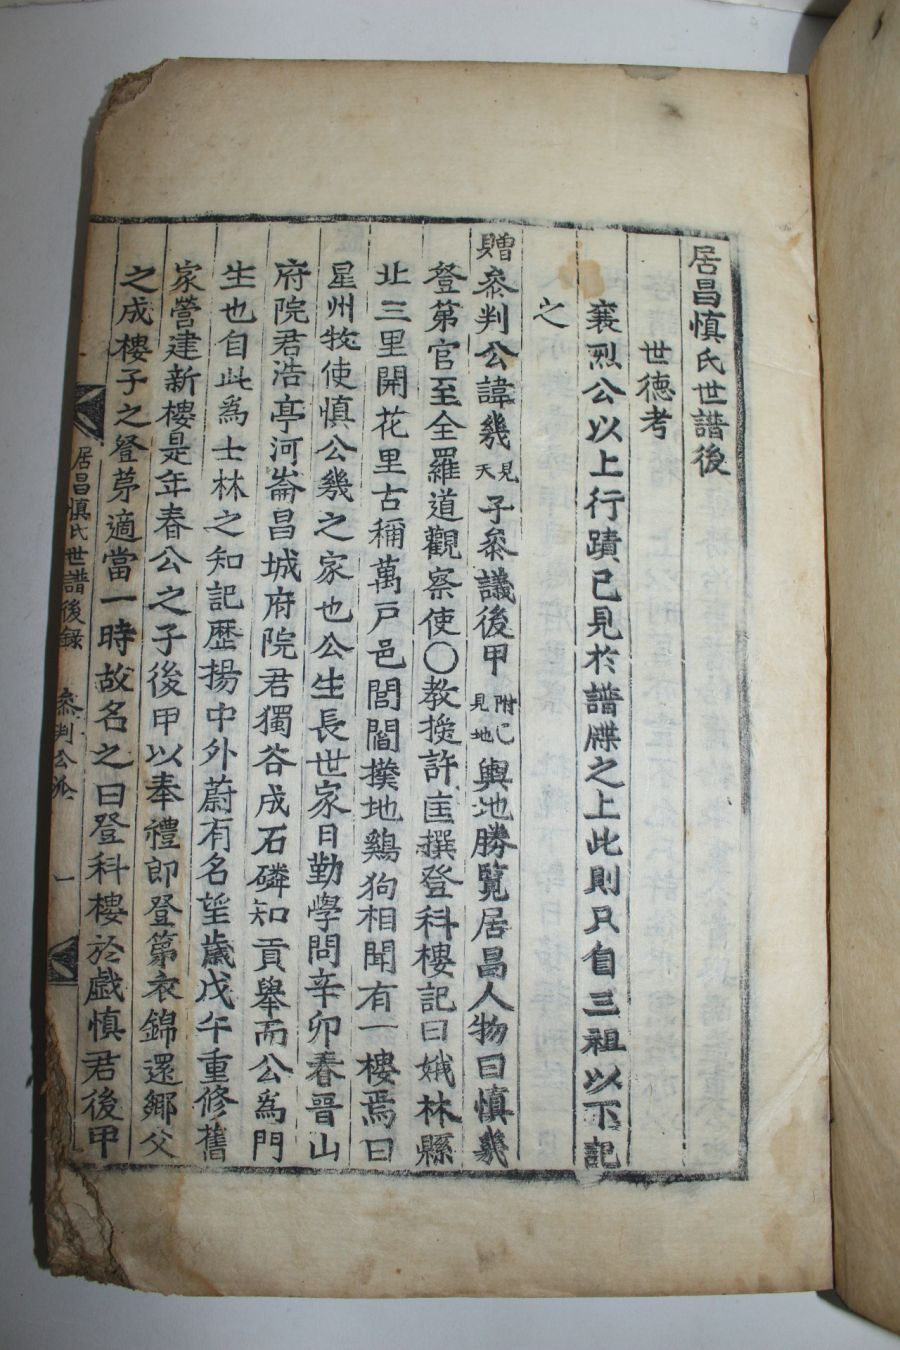 居昌慎氏世譜後
世德考
襄烈公以上行蹟已見於譜牒之上此則只自三祖以下記
之
贈叅判公諱幾見天子叅議後甲附己見地輿地勝覽居昌人物曰慎幾
登第官至全羅道觀察使○教授許匡撰登科樓記曰娥林縣
北三里開花里古稱萬戶邑閭閻撲地鷄狗相聞有一樓焉曰
星州牧使慎公幾之家也公生長世家日勤學問辛卯春晋山
府院君浩亭河崙昌城府院君獨谷成石磷知貢舉而公爲門
生也自此爲士林之知記歷揚中外蔚有名望歲戊午重修舊
家營建新樓是年春公之子後甲以奉禮郎登第衣錦還鄉父
之成樓子之登茅適當一時故名之曰登科樓於戲慎君後甲
居昌慎氏世譜後錄 叅判公派 一